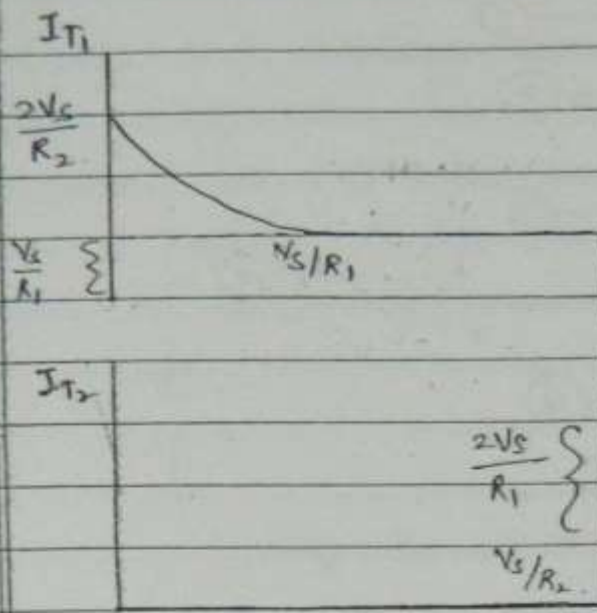 I_T₁
2Vs
R₂
Vs/R₁
Vs
R₁
I_T₂
2Vs
R₁
Vs/R₂